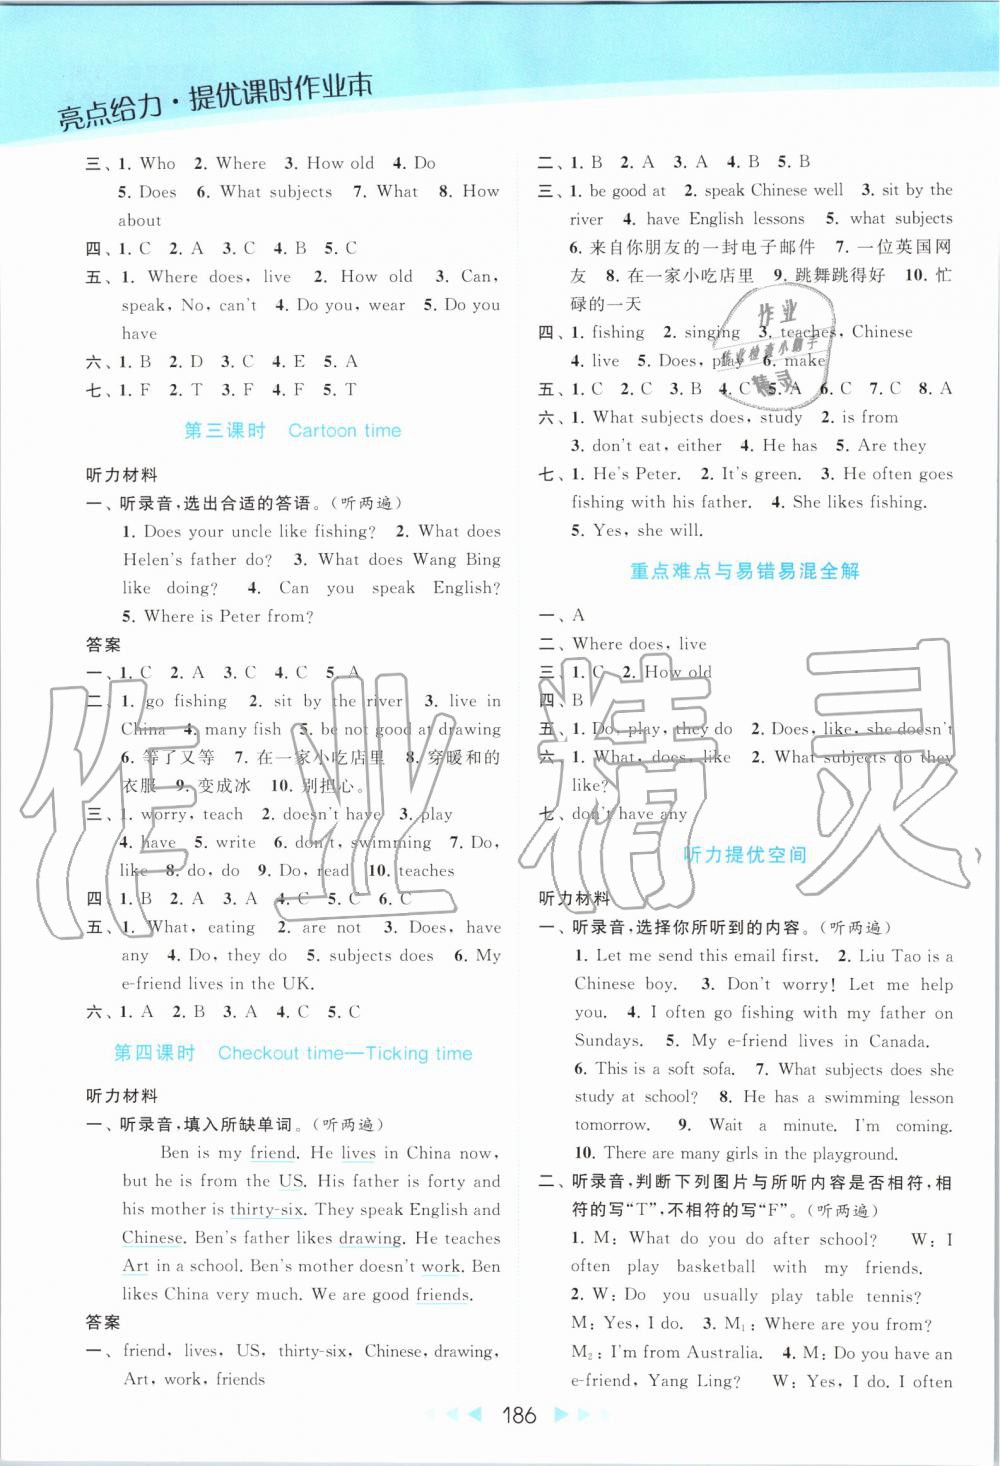 亮点给力·提优课时作业本
三、1. Who 2. Where 3. How old 4. Do
5. Does 6. What subjects 7. What 8. How
about
四、1. C 2. A 3. C 4. B 5. C
五、1. Where does, live 2. How old 3. Can,
speak, No, can't 4. Do you, wear 5. Do you
have
六、1. B 2. D 3. C 4. E 5. A
七、1. F 2. T 3. F 4. F 5. T
第三课时 Cartoon time
听力材料
一、听录音,选出合适的答语。(听两遍)
1. Does your uncle like fishing? 2. What does
Helen's father do? 3. What does Wang Bing
like doing? 4. Can you speak English?
5. Where is Peter from?
答案
一、1. C 2. A 3. C 4. C 5. A
二、1. go fishing 2. sit by the river 3. live in
China 4. many fish 5. be not good at drawing
6. 等了又等 7. 在一家小吃店里 8. 穿暖和的
衣服 9. 变成冰 10. 别担心。
三、1. worry, teach 2. doesn't have 3. play
4. have 5. write 6. don't, swimming 7. Do,
like 8. do, do 9. Do, read 10. teaches
四、1. B 2. A 3. A 4. C 5. C 6. C
五、1. What, eating 2. are not 3. Does, have
any 4. Do, they do 5. subjects does 6. My
e-friend lives in the UK.
六、1. A 2. B 3. A 4. C 5. C
第四课时 Checkout time—Ticking time
听力材料
一、听录音,填入所缺单词。(听两遍)
Ben is my friend. He lives in China now,
but he is from the US. His father is forty and
his mother is thirty-six. They speak English and
Chinese. Ben's father likes drawing. He teaches
Art in a school. Ben's mother doesn't work. Ben
likes China very much. We are good friends.
答案
一、friend, lives, US, thirty-six, Chinese, drawing,
Art, work, friends
二、1. B 2. A 3. A 4. B 5. B
三、1. be good at 2. speak Chinese well 3. sit by the
river 4. have English lessons 5. what subjects
6. 来自你朋友的一封电子邮件 7. 一位英国网
友 8. 在一家小吃店里 9. 跳舞跳得好 10. 忙
碌的一天
四、1. fishing 2. singing 3. teaches, Chinese
4. live 5. Does, play 6. make
五、1. C 2. C 3. B 4. C 5. A 6. C 7. C 8. A
六、1. What subjects does, study 2. is from
3. don't eat, either 4. He has 5. Are they
七、1. He's Peter. 2. It's green. 3. He often goes
fishing with his father. 4. She likes fishing.
5. Yes, she will.
重点难点与易错易混全解
一、A
二、Where does, live
三、1. C 2. How old
四、B
五、1. Do, play, they do 2. Does, like, she doesn't
六、1. What, does, like 2. What subjects do they
like?
七、don't have any
听力提优空间
听力材料
一、听录音,选择你所听到的内容。(听两遍)
1. Let me send this email first. 2. Liu Tao is a
Chinese boy. 3. Don't worry! Let me help
you. 4. I often go fishing with my father on
Sundays. 5. My e-friend lives in Canada.
6. This is a soft sofa. 7. What subjects does she
study at school? 8. He has a swimming lesson
tomorrow. 9. Wait a minute. I'm coming.
10. There are many girls in the playground.
二、听录音,判断下列图片与所听内容是否相符,相
符的写“T”,不相符的写“F”。(听两遍)
1. M: What do you do after school? W: I
often play basketball with my friends.
2. W: Do you usually play table tennis?
M: Yes, I do. 3. M₁: Where are you from?
M₂: I'm from Australia. 4. M: Do you have an
e-friend, Yang Ling? W: Yes, I do. I often
186
作业
作业检查小助手
精灵
作业精灵